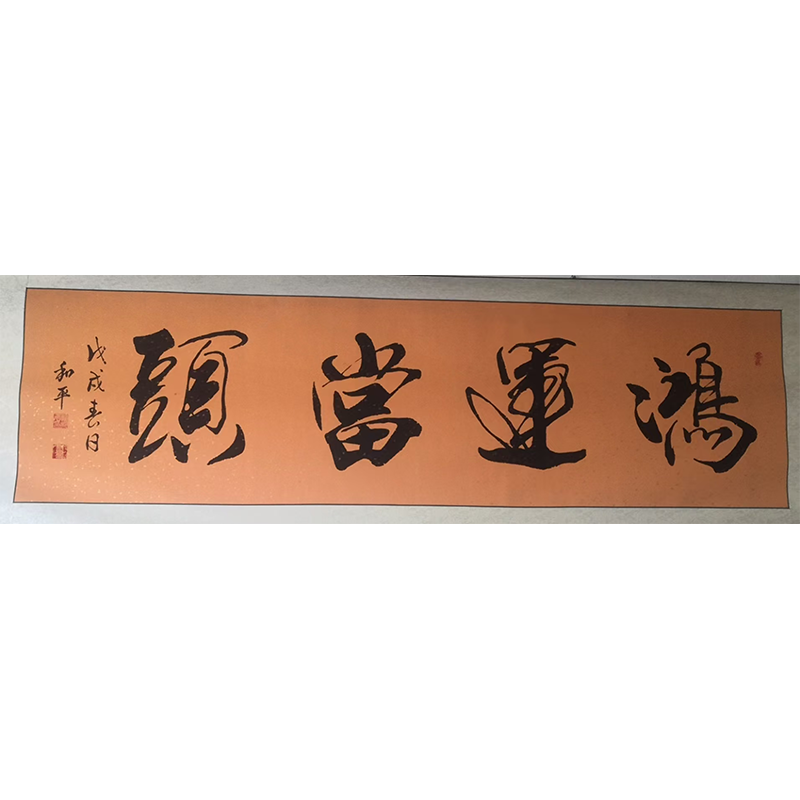 鴻運當頭
戊戌春日
和平